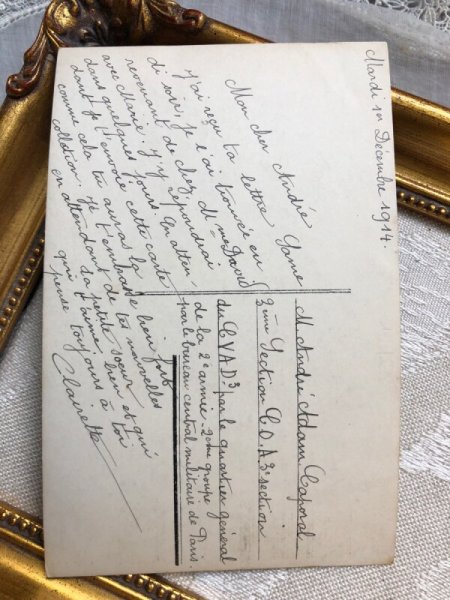 Mardi 1er Décembre 1914.
Mon cher André
J'ai reçu ta lettre Same
di soir, je l'ai trouvée en
revenant de chez David
avec Marie. J'y répondrai
dans quelques jours. En atten-
dant je t'envoie cette carte
comme cela tu auras la
collection. Je t'embrasse bien fort
en attendant de tes nouvelles
ta petite soeur
qui t'aime bien et qui
pense toujours à toi
Clairette
M. André Adam Caporal
3ème Section C.O.A 3e section
du CVAD3 par le quartier général
de la 2e armée - 2ème groupe
par le bureau central militaire de Paris.